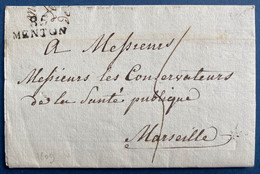 MENTON
A Messieurs
Messieurs les Conservateurs
de la Santé publique
Marseille